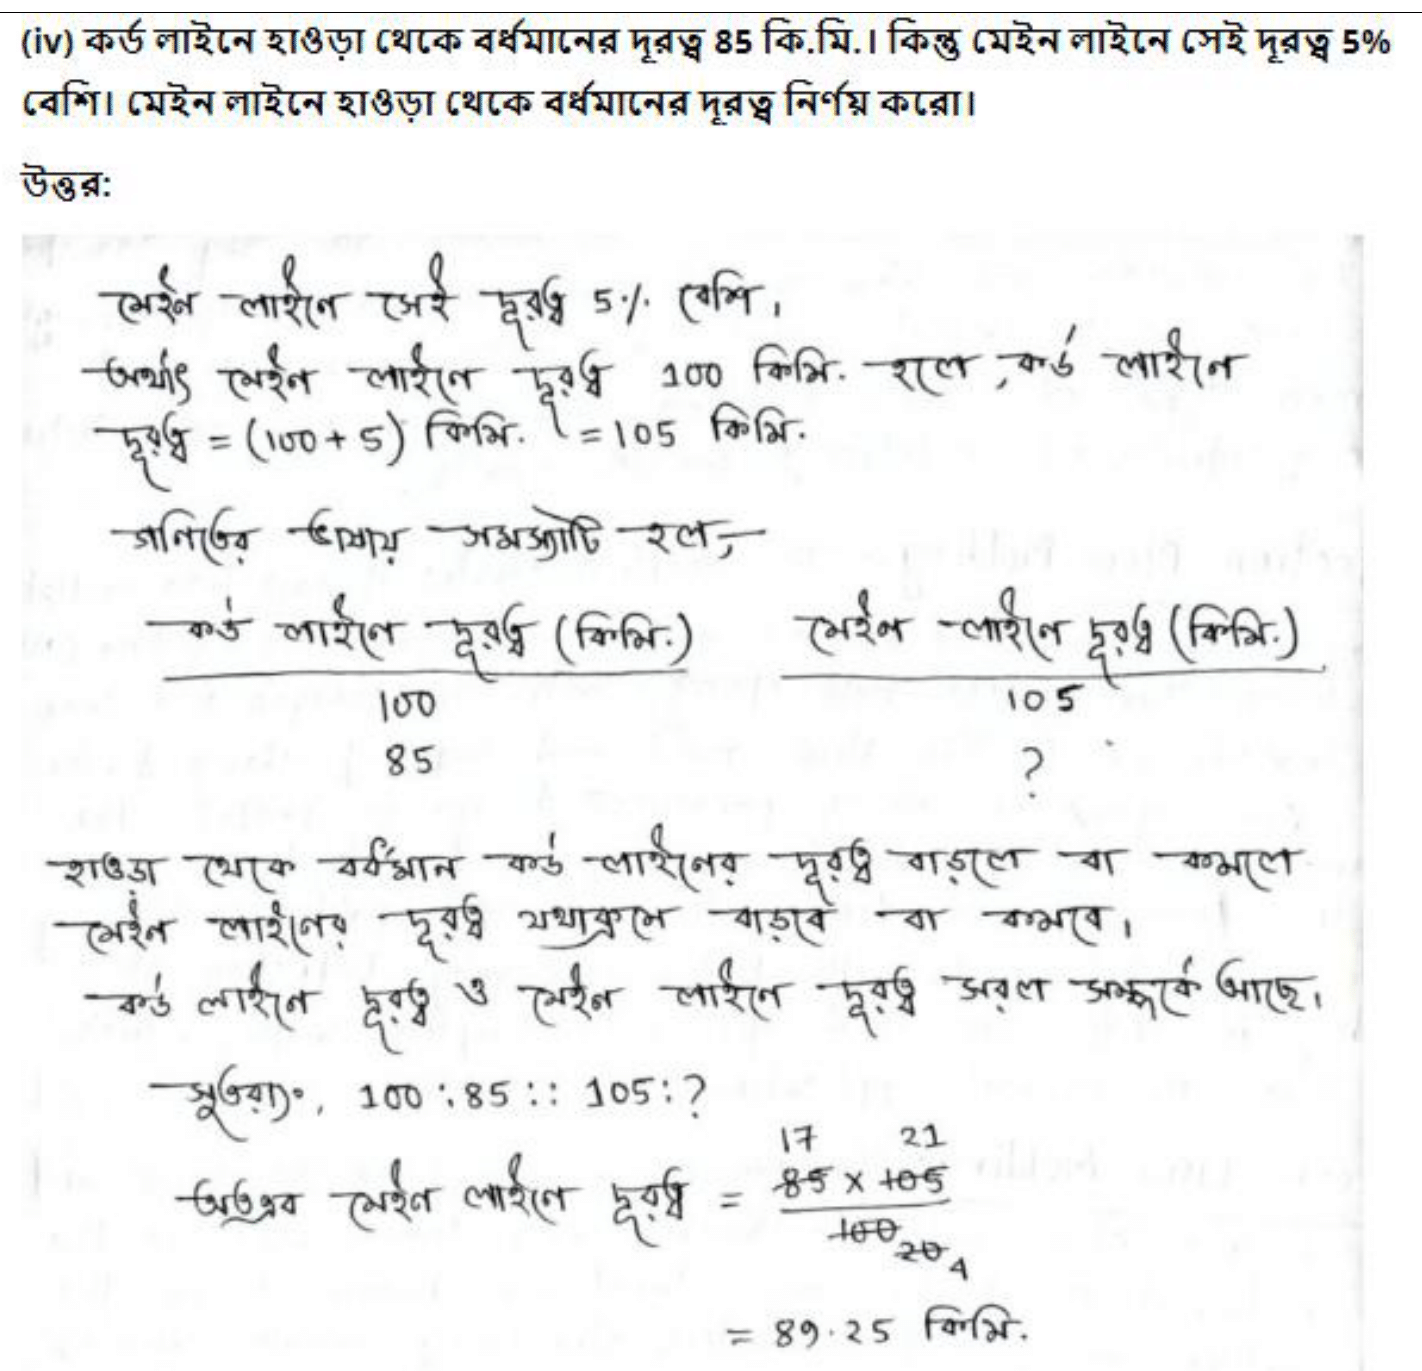 (iv) কর্ড লাইনে হাওড়া থেকে বর্ধমানের দূরত্ব 85 কি.মি.। কিন্তু মেইন লাইনে সেই দূরত্ব 5%
বেশি। মেইন লাইনে হাওড়া থেকে বর্ধমানের দূরত্ব নির্ণয় করো।
উত্তর:
মেইন লাইনে সেই দূরত্ব 5% বেশি।
অর্থাৎ মেইন লাইনে দূরত্ব 100 কিমি. হলে, কর্ড লাইনে
দূরত্ব = (100 + 5) কিমি. = 105 কিমি.
গণিতের ভাষায় সমস্যাটি হল,—
কর্ড লাইনে দূরত্ব (কিমি.) মেইন লাইনে দূরত্ব (কিমি.)
100 105
85 ?
হাওড়া থেকে বর্ধমান কর্ড লাইনের দূরত্ব বাড়লে বা কমলে
মেইন লাইনের দূরত্ব যথাক্রমে বাড়বে বা কমবে।
কর্ড লাইনে দূরত্ব ও মেইন লাইনে দূরত্ব সরল সম্পর্কে আছে।
সুতরাং, 100 : 85 :: 105 : ?
17 21
অতএব মেইন লাইনে দূরত্ব = 85 x 105
100 20 4
= 89.25 কিমি.